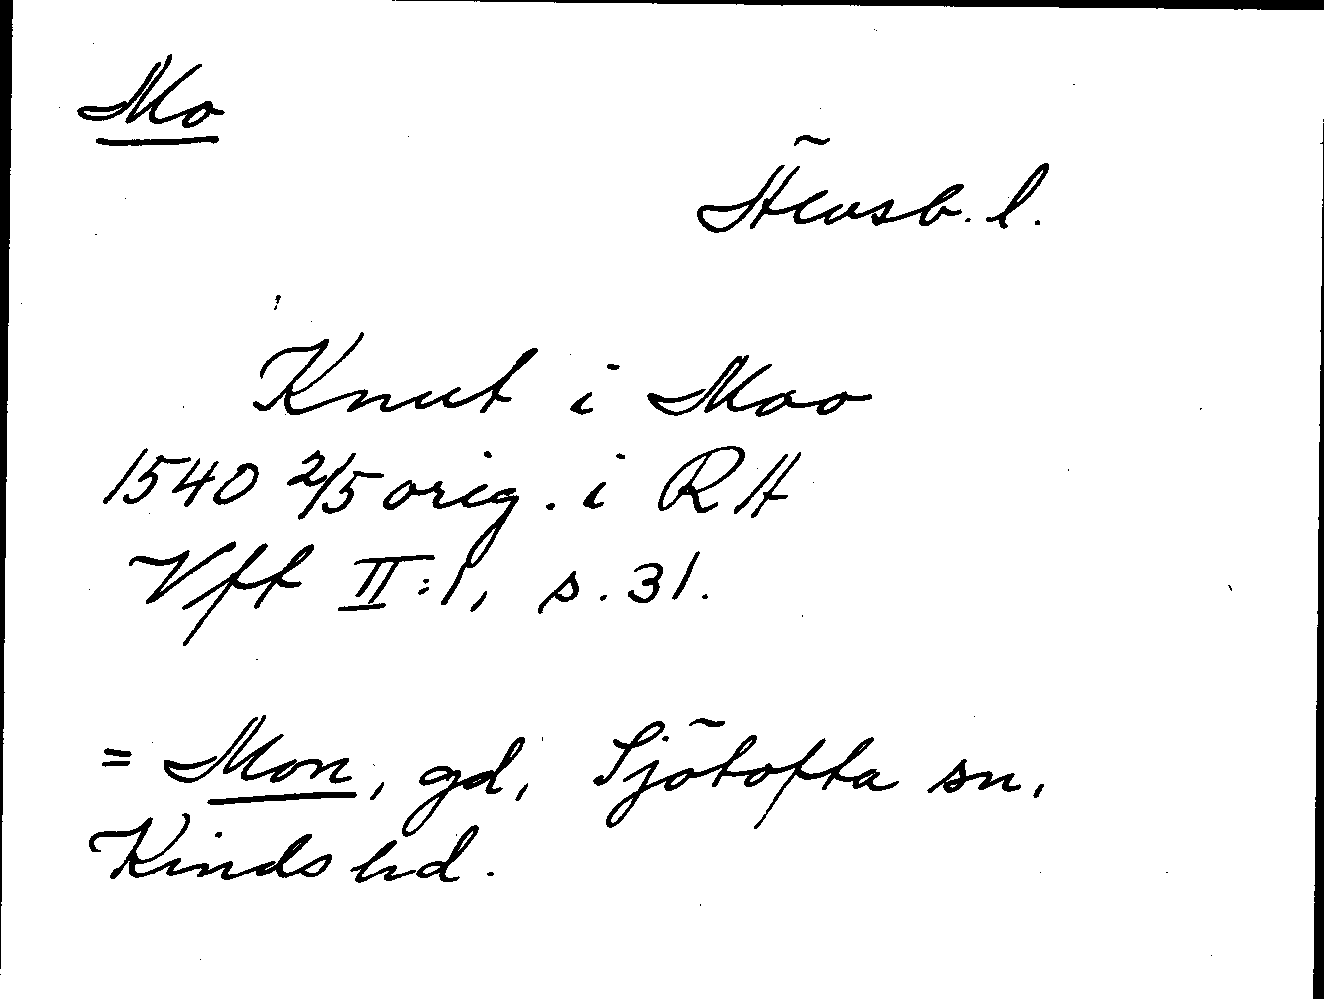 Mo
Älvsb. l.
Knut i Moo
1540 2/5 orig. i RA
Vft II:1, s. 31.
= Mon, gd, Sjötofta sn,
Kinds hd.